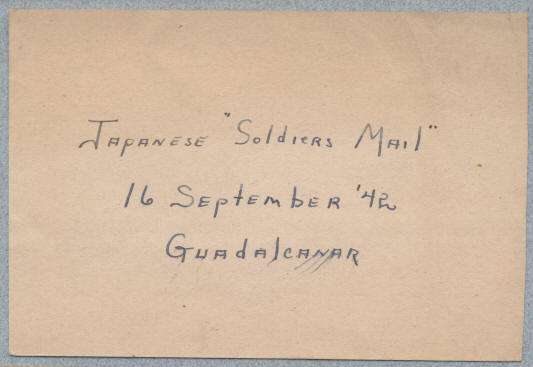 Japanese "Soldiers Mail"
16 September '42
Guadalcanar